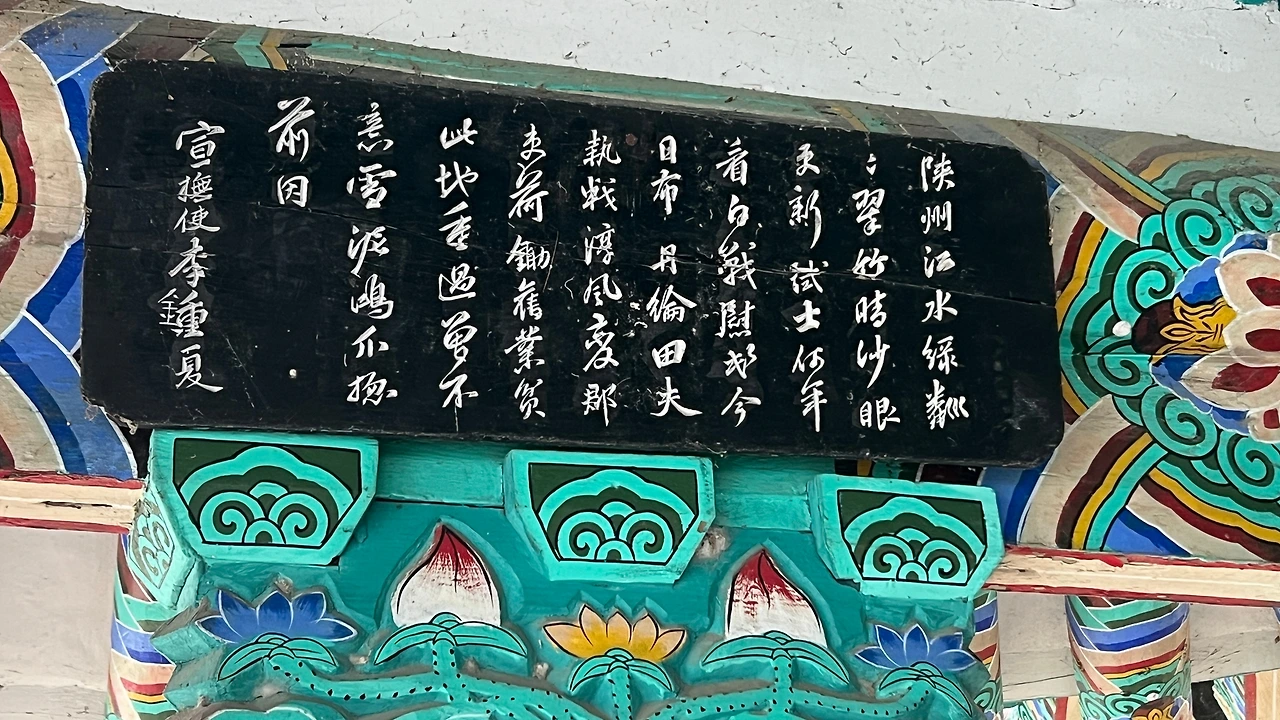 陜州江水綠粼
〻翠竹晴沙眼
更新試士何年
看白戰慰今
日布丹綸田夫
執戟淳風變郡
吏荷鋤舊業貧
此地重過曾不
意雪泥鴻爪摠
前因
宣撫使李鍾夏